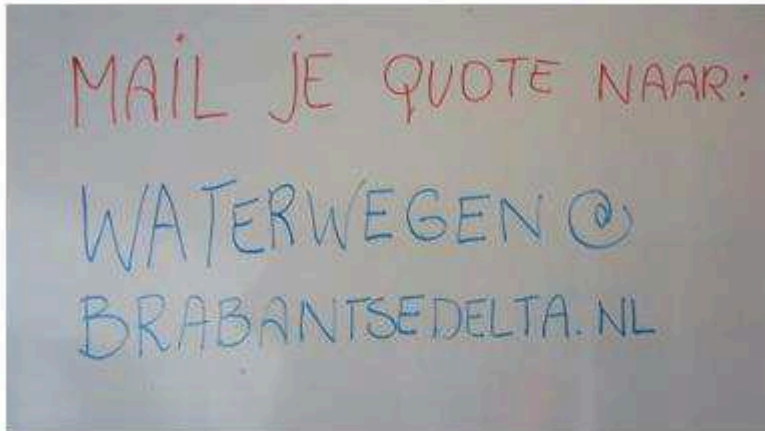 MAIL JE QUOTE NAAR:
WATERWEGEN@
BRABANTSEDELTA.NL